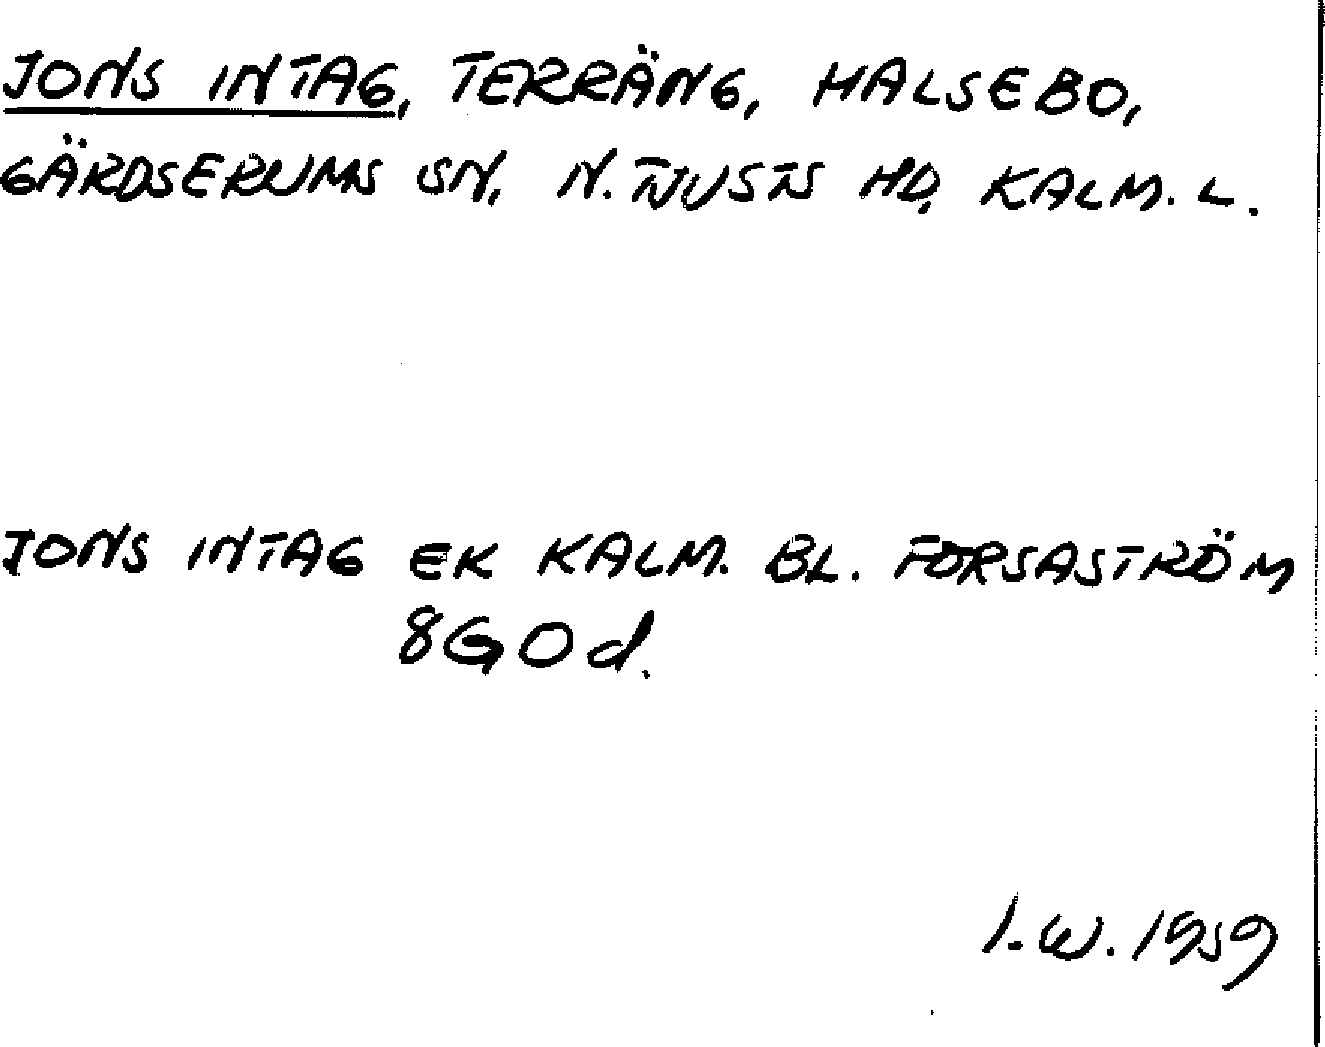 JONS INTAG, TERRÄNG, HALSEBO,
GÄRDSERUMS SN, N. TJUSTS HD, KALM. L.
JONS INTAG EK KALM. BL. FORSASTRÖM
8G0d.
I.W. 1959